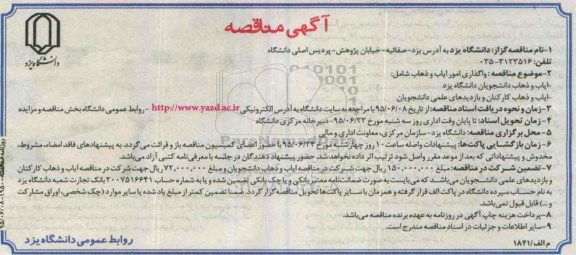 آگهی مناقصه
دانشگاه یزد
۱-نام مناقصه گزار: دانشگاه یزد به آدرس یزد-صفائیه-خیابان پژوهش- پردیس اصلی دانشگاه
تلفن: ۳۱۲۳۳۵۱۶-۰۳۵
۲-موضوع مناقصه : واگذاری امور ایاب و ذهاب شامل:
-ایاب و ذهاب دانشجویان دانشگاه یزد-
-ایاب و ذهاب کارکنان و بازدیدهای علمی دانشجویان
۳- زمان و نحوه دریافت اسناد مناقصه: از تاریخ ۹۵/۰۶/۰۸ با مراجعه به سایت دانشگاه به آدرس الکترونیکی http://www.yazd.ac.ir - روابط عمومی دانشگاه بخش مناقصه و مزایده
۴- زمان تحویل اسناد: تا پایان وقت اداری روز سه شنبه مورخ ۹۵/۰۶/۲۳ - دبیرخانه مرکزی دانشگاه
۵- محل برگزاری مناقصه: دانشگاه یزد-سازمان مرکزی، معاونت اداری و مالی
۶- زمان بازگشایی پاکت‌ها: پیشنهادات واصله ساعت ۱۰ روز چهارشنبه مورخ ۹۵/۰۶/۲۴ با حضور اعضای کمیسیون مناقصه باز و قرائت می‌گردد. به پیشنهادهای فاقد امضاء، مشروط،
مخدوش و پیشنهاداتی که بعد از موعد مقرر واصل شود ترتیب اثر داده نخواهد شد. حضور پیشنهاد دهندگان در جلسه با معرفی نامه کتبی آزاد می‌باشد.
۷- تضمین شرکت در مناقصه: مبلغ ۱۵۰,۰۰۰,۰۰۰ ریال جهت شرکت در مناقصه ایاب و ذهاب دانشجویان و مبلغ ۷۲,۰۰۰,۰۰۰ ریال جهت شرکت در مناقصه ایاب و ذهاب کارکنان
و بازدیدهای علمی دانشجویان می‌باشد که می‌بایست به صورت ضمانتنامه معتبر بانکی و یا چک بانکی تضمین شده و یا به شماره حساب ۲۰۰۷۵۱۶۶۴۱ بانک تجارت شعبه دانشگاه یزد
به نام حساب سپرده دانشگاه در پاکت الف قرار گرفته و همزمان با سایر پاکت‌ها تحویل مناقصه گزار گردد. ضمنا تضمین کمتر از مبلغ یاد شده یا سایر موارد (چک شخصی، اوراق مشارکت
و ...) قابل قبول نمی‌باشد.
۸-پرداخت هزینه چاپ آگهی در روزنامه به عهده برنده مناقصه می‌باشد.
۹- سایر اطلاعات و جزئیات در اسناد مناقصه مندرج است.
م الف/۱۸۴۱
روابط عمومی دانشگاه یزد